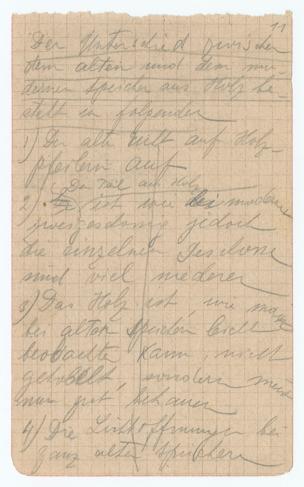 11
Der Unterschied zwischen
dem alten und dem mo-
dernen Speicher aus Holz be-
steht in folgender
1) Der alte ruht auf Holz-
pfeilern auf
Der Teil aus Holz
2) ist wie bei modern
zweigeschossig jedoch
die einzelnen Geschosse
sind viel niederer
3) Das Holz ist, wie man
bei alten Speichern leicht
beobachten kann, nicht
gehobelt, sondern meist
nur gut behauen
4) Die Lichtöffnungen bei
ganz alten Speichern